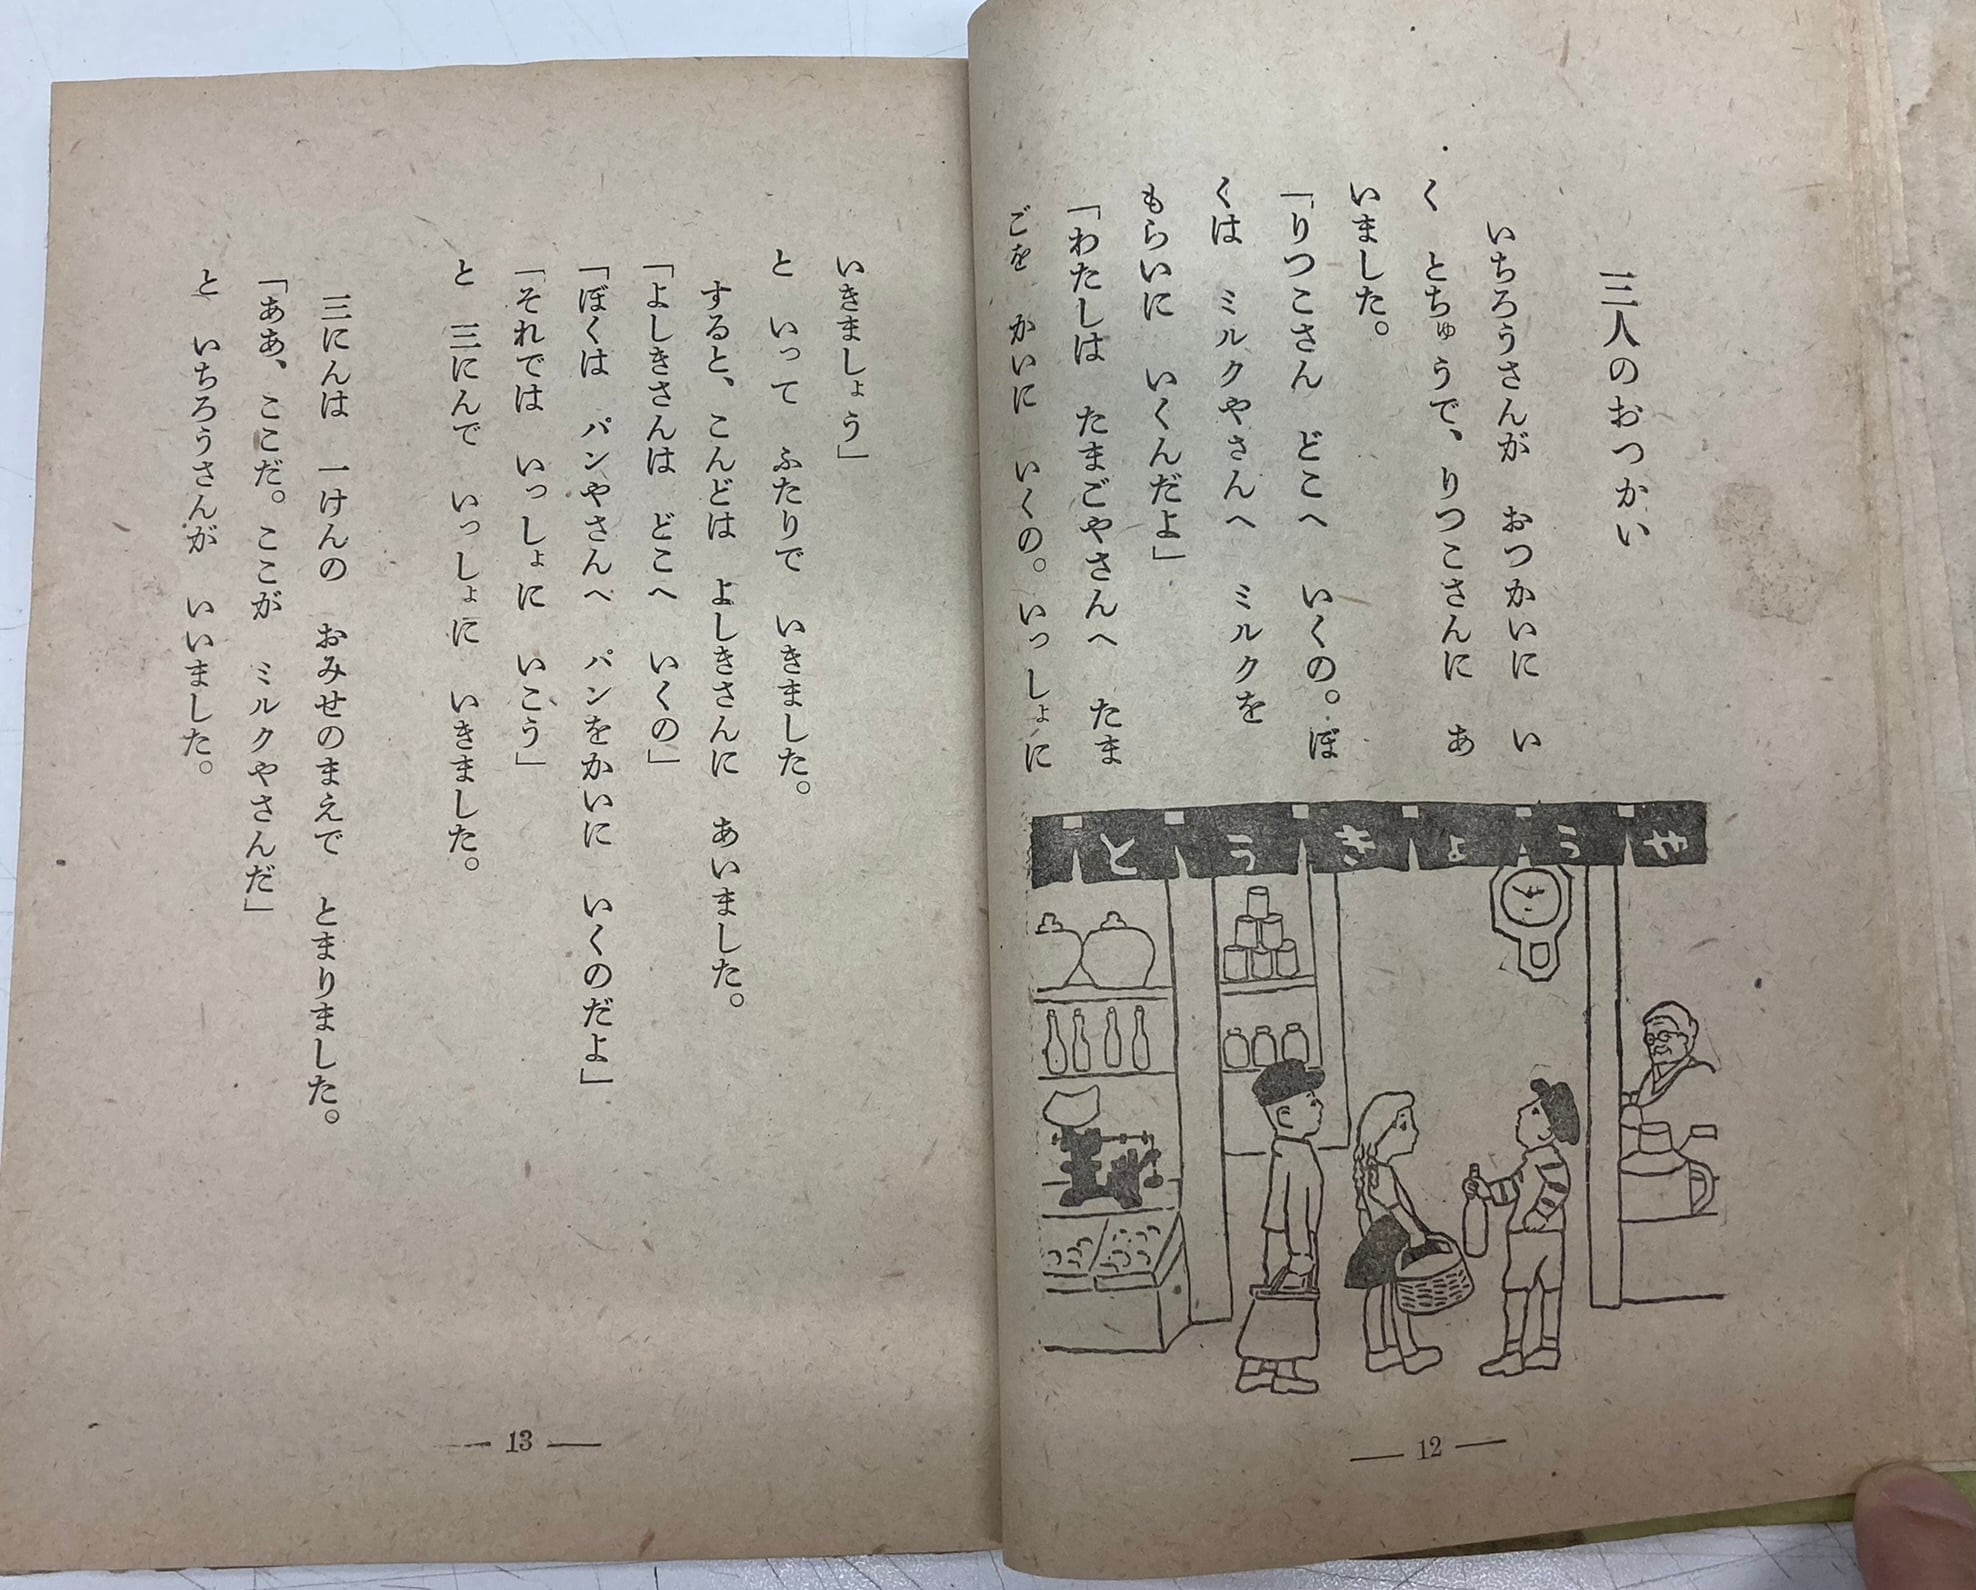 三人のおつかい
いちろうさんが　おつかいに　い
く　とちゅうで、りつこさんに　あ
いました。
「りつこさん　どこへ　いくの。ぼ
くは　ミルクやさんへ　ミルクを
もらいに　いくんだよ」
「わたしは　たまごやさんへ　たま
ごを　かいに　いくの。いっしょに
とうきょうや
— 12 —
いきましょう」
と　いって　ふたりで　いきました。
すると、こんどは　よしきさんに　あいました。
「よしきさんは　どこへ　いくの」
「ぼくは　パンやさんへ　パンをかいに　いくのだよ」
「それでは　いっしょに　いこう」
と　三にんで　いっしょに　いきました。
三にんは　一けんの　おみせのまえで　とまりました。
「ああ、ここだ。ここが　ミルクやさんだ」
と　いちろうさんが　いいました。
— 13 —